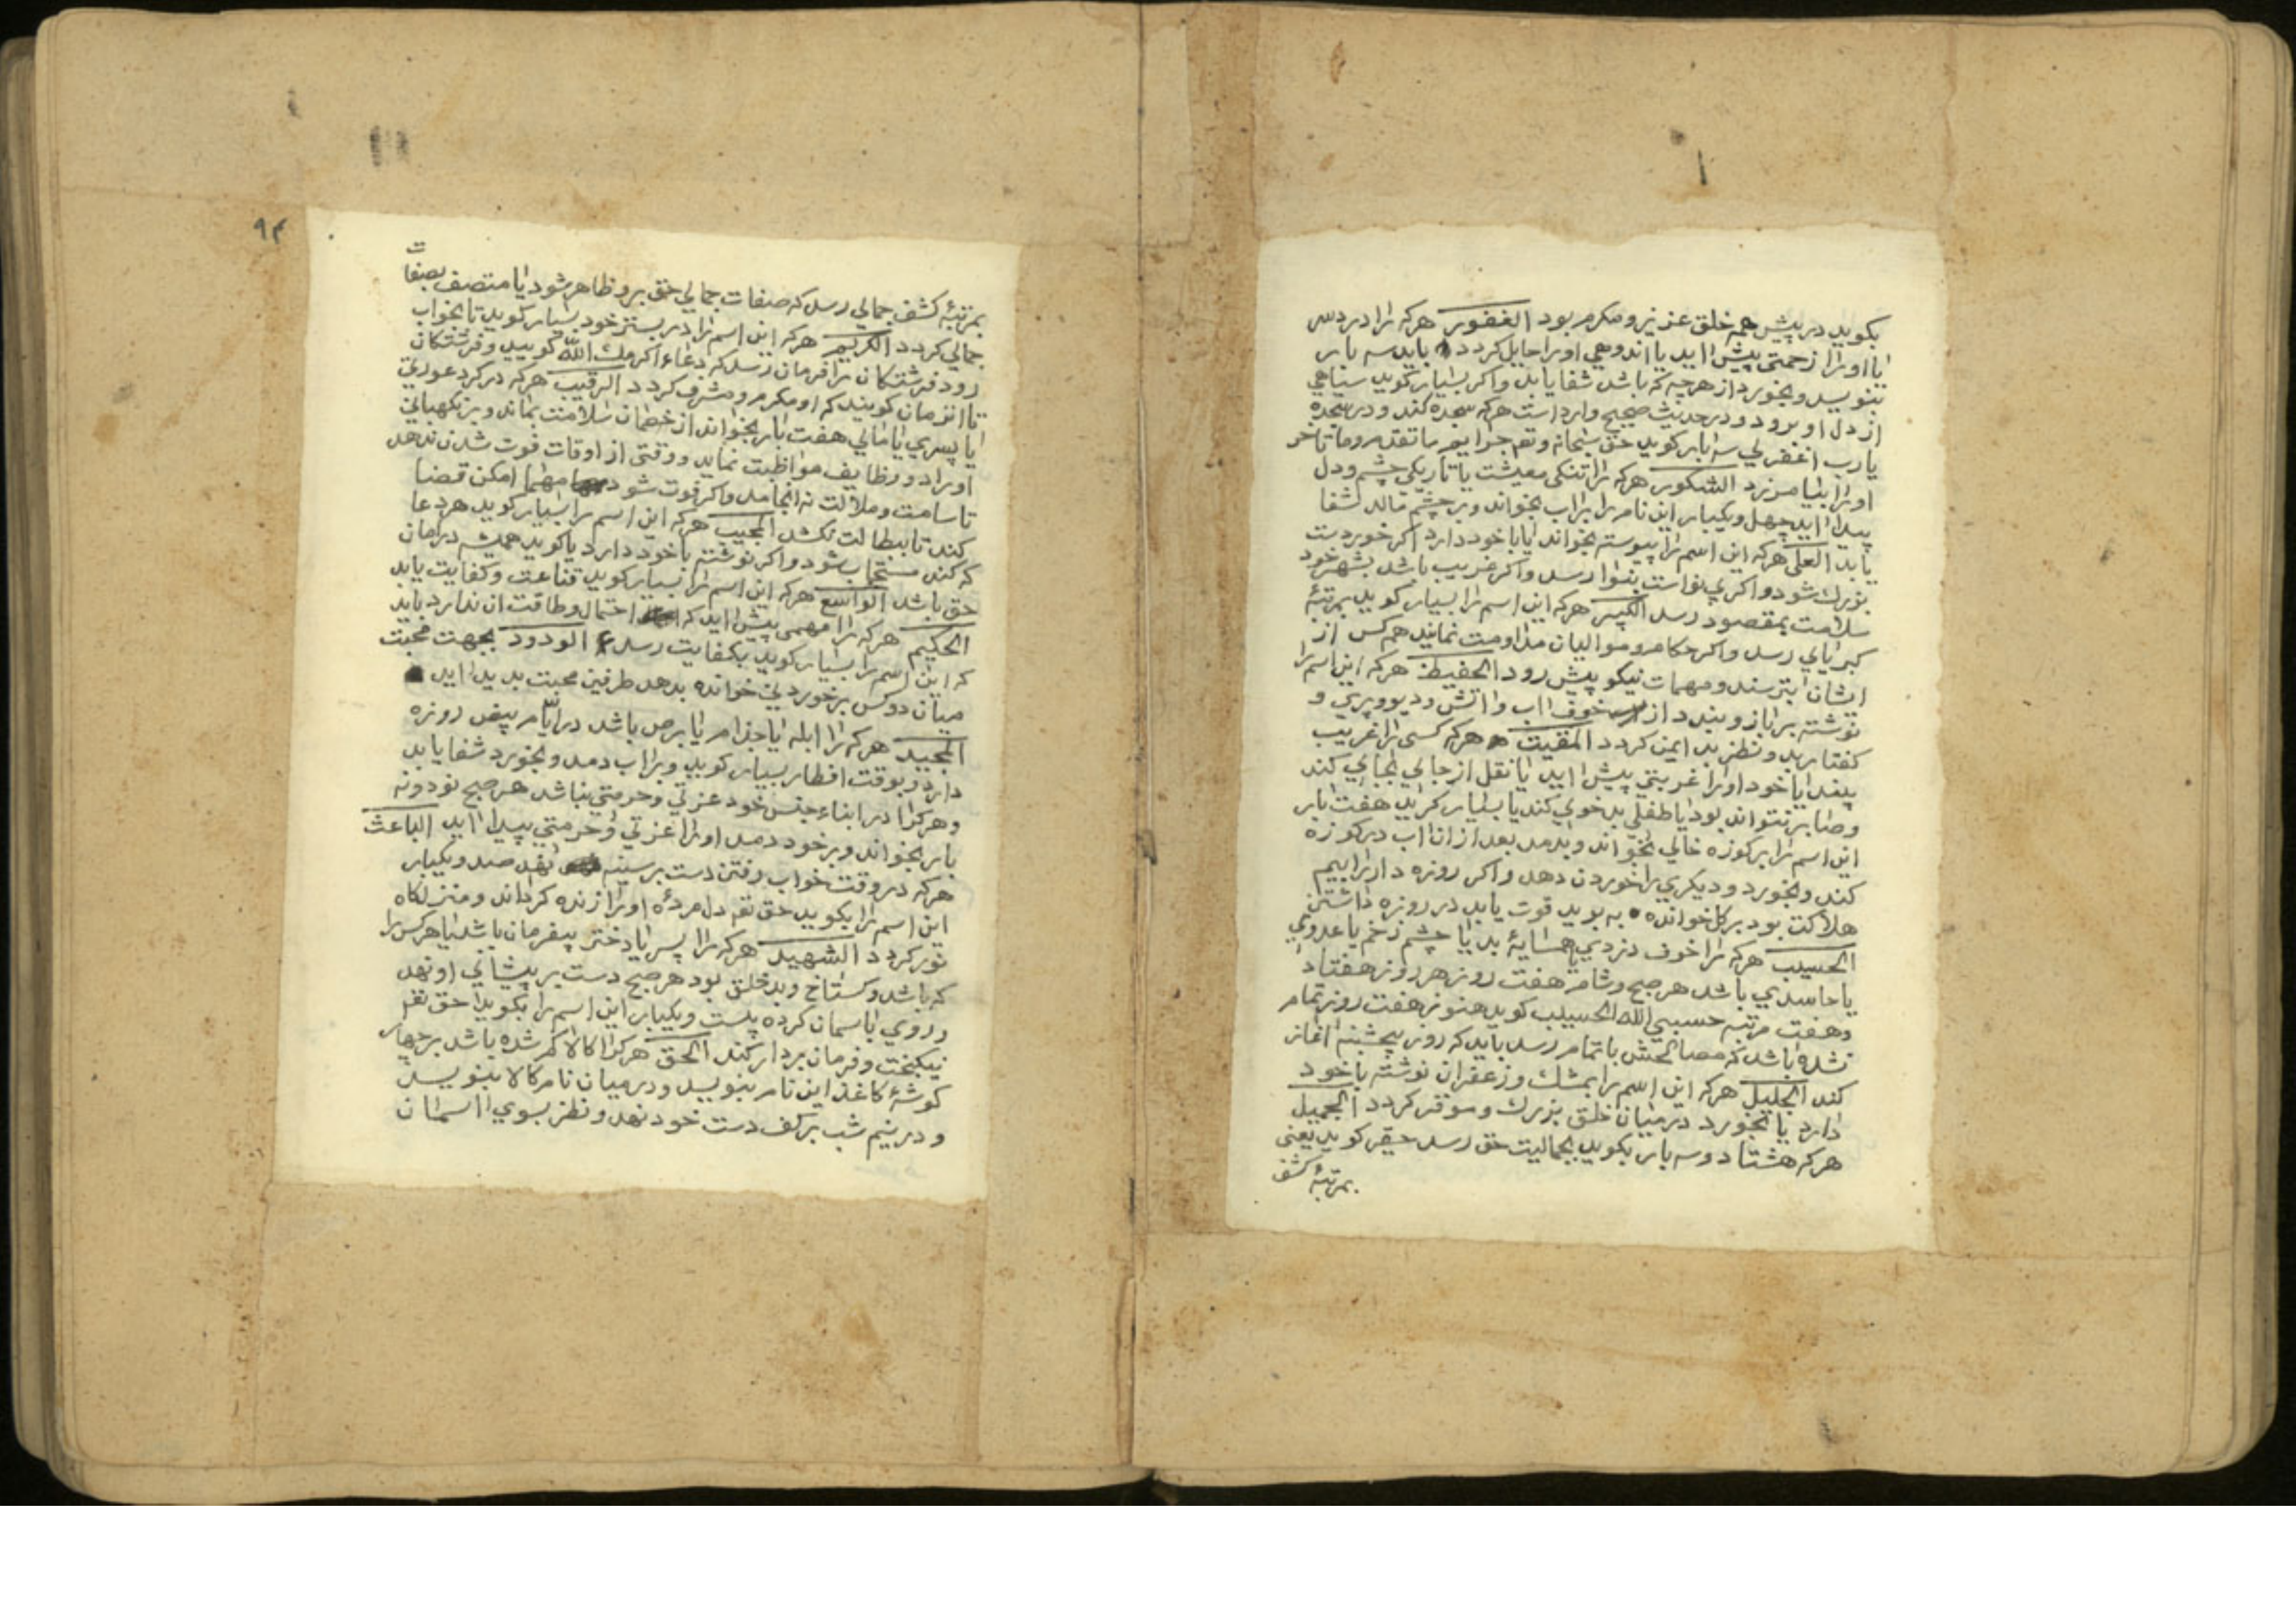 بکوید در پیش همه خلق عزیز و مکرم بود الغفور هرکه را درد سر
یا او را زحمتی پیش اید یا اندوهی او را حایل کردد باید سه بار
بنویسد و بخورد از هرچه که باشد شفا یابد و اکر بسیار کوید سیاهی
از دل او برود و در حدیث صحیح وارد است هرکه سجده کند و در سجده
یا رب اغفر لی سه بار کوید حق سبحانه و تعـ جرایم ما تقدم و ما تاخر
او را بیامرزد الشکور هرکه را تنکی معیشت یا تاریکی چشم و دل
پیدا اید چهل و یکبار این نام را بر اب بخواند و بر چشم مالد شفا
یابد العلی هرکه این اسم را پیوسته بخواند یا با خود دارد اکر خوردست
بزرك شود و اکر بی نواست بنوا رسد و اکر غریب باشد بشهر خود
سلامت بمقصود رسد الکبیر هرکه این اسم را بسیار کوید بمرتبهٔ
کبریایی رسد و اکر حکام و موالیان مداومت نمایند همه کس از
ایشان بترسند و مهمات نیکو پیش رود الحفیظ هرکه این اسم را
نوشته بر بازو بندد از خوف اب و اتش و دیو و پری و
کفتار بد و نظر بد ایمن کردد المقیت هرکه کسی را غریب
بیند یا خود او را غربتی پیش اید یا نقل از جایی بجایی کند
و صابر نتواند بود یا طفلی بدخویی کند یا بسیار کرید هفت بار
این اسم را بر کوزه خالی بخواند و بدمد بعد از ان اب در کوزه
کند و بخورد و دیکری را خوردن دهد و اکر روزه دار را بیم
هلاکت بود بر کل خوانده به بوید قوت یابد در روزه داشتن
الحسیب هرکه را خوف دزدی یا همسایهٔ بد یا چشم زخم یا عدوی
یا حاسدی باشد هر صبح و شام هفت روز هر روز هفتاد
و هفت مرتبه حسبی الله الحسیب کوید هنوز هفت روز تمام
نشده باشد که مصالحش باتمام رسد باید که روز پنجشنبه اغاز
کند الجلیل هرکه این اسم را بمشك و زعفران نوشته با خود
دارد یا بخورد در میان خلق بزرك و موقر کردد الجمیل
هرکه هشتاد و سه بار بکوید بجمالیت حق رسد حقیر کوید یعنی
بمرتبهٔ کشف
۹۴
بمرتبهٔ کشف جمالی رسد که صفات جمالی حق برو ظاهر شود یا متصف بصفات
جمالی کردد الکریم هرکه این اسم را در بستر خود بسیار کوید تا بخواب
رود فرشتکان را فرمان رسد که دعاء اکرمك الله کویید و فرشتکان
تا ان زمان کویند که او مکرم و مشرف کردد الرقیب هرکه در کرد عورتی
یا پسری یا مالی هفت بار بخواند از خصمان سلامت بماند و بر نکهبانی
اوراد و وظایف مواظبت نماید و وقتی از اوقات فوت شدن ندهد
تا سامت و ملالت نه انجامد و اکر فوت شود مهما امکن قضا
کند تا ببطالت نکشد المجیب هرکه این اسم را بسیار کوید هر دعا
که کند مستجاب شود و اکر نوشته با خود دارد یا کوید همیشه در امان
حق باشد الواسع هرکه این اسم را بسیار کوید قناعت و کفایت یابد
الحکیم هرکه را مهمی پیش اید که احتمال و طاقت ان ندارد باید
که این اسم را بسیار کوید بکفایت رسد الودود بجهت محبت
میان دو کس بر خوردنی خوانده بدهد طرفین محبت پدید اید
المجید هرکه را ابله یا جذام یا برص باشد در ایام بیض روزه
دارد و بوقت افطار بسیار کوید و بر اب دمد و بخورد شفا یابد
و هرکرا در ابناء جنس خود عزتی و حرمتی نباشد هر صبح نود و نه
بار بخواند و بر خود دمد او را عزتی و حرمتی پیدا اید الباعث
هرکه در وقت خواب رفتن دست بر سینه نهد صد و یکبار
این اسم را بکوید حق تعـ دل مردهٔ او را زنده کرداند و منزلکاه
نور کردد الشهید هرکه را پسر یا دختر بیفرمان باشد یا هرکس را
که باشد و کستاخ و بدخلق بود هر صبح دست بر پیشانی او نهد
و روی باسمان کرده بیست و یکبار این اسم را بکوید حق تعـ
نیکبخت و فرمان بردار کند الحق هرکرا کالا کم شده باشد بر چهار
کوشهٔ کاغذ این نام بنویسد و در میان نام کالا بنویسد
و در نیم شب بر کف دست خود نهد و نظر بسوی اسمان